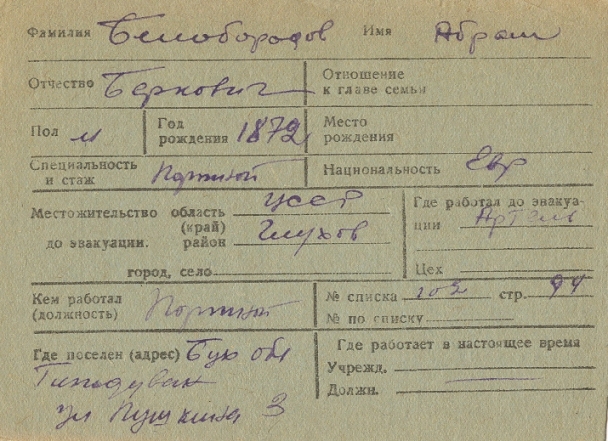 Фамилия Белобородов Имя Абрам
Отчество Беркович Отношение к главе семьи
Пол м Год рождения 1872 Место рождения
Специальность и стаж Портной Национальность Евр
Местожительство область УССР Где работал до эвакуа-
(край) ции Артель
до эвакуации. район Глухов
город, село Цех
Кем работал (должность) Портной № списка 202 стр. 94
№ по списку
Где поселен (адрес) Бух обл Где работает в настоящее время
Гиждуван Учрежд.
ул Пушкина 3 Должн.